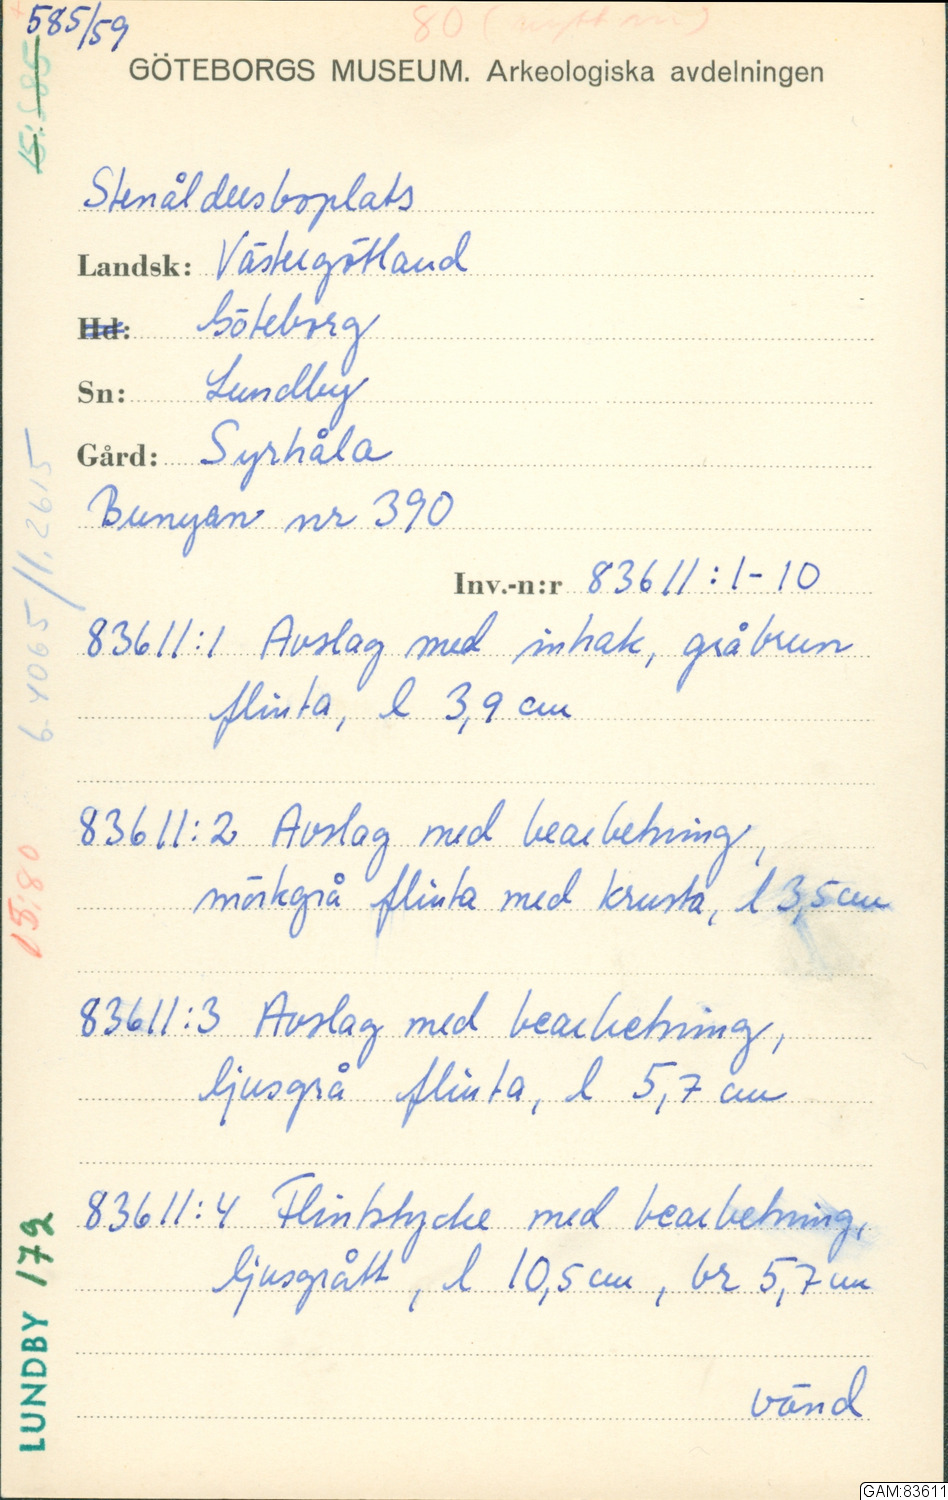 585/59
80 (nytt nr)
GÖTEBORGS MUSEUM. Arkeologiska avdelningen
15:585
Stenåldersboplats
Landsk: Västergötland
Hd: Göteborg
Sn: Lundby
Gård: Syrhåla
Bunyan nr 390
Inv.-n:r 83611:1-10
83611:1 Avslag med inhak, gråbrun
flinta, l 3,9 cm
83611:2 Avslag med bearbetning,
mörkgrå flinta med krusta, l 3,5 cm
83611:3 Avslag med bearbetning,
ljusgrå flinta, l 5,7 cm
83611:4 Flintstycke med bearbetning,
ljusgrått, l 10,5 cm, br 5,7 cm
vänd
15:80
LUNDBY 172
GAM:83611